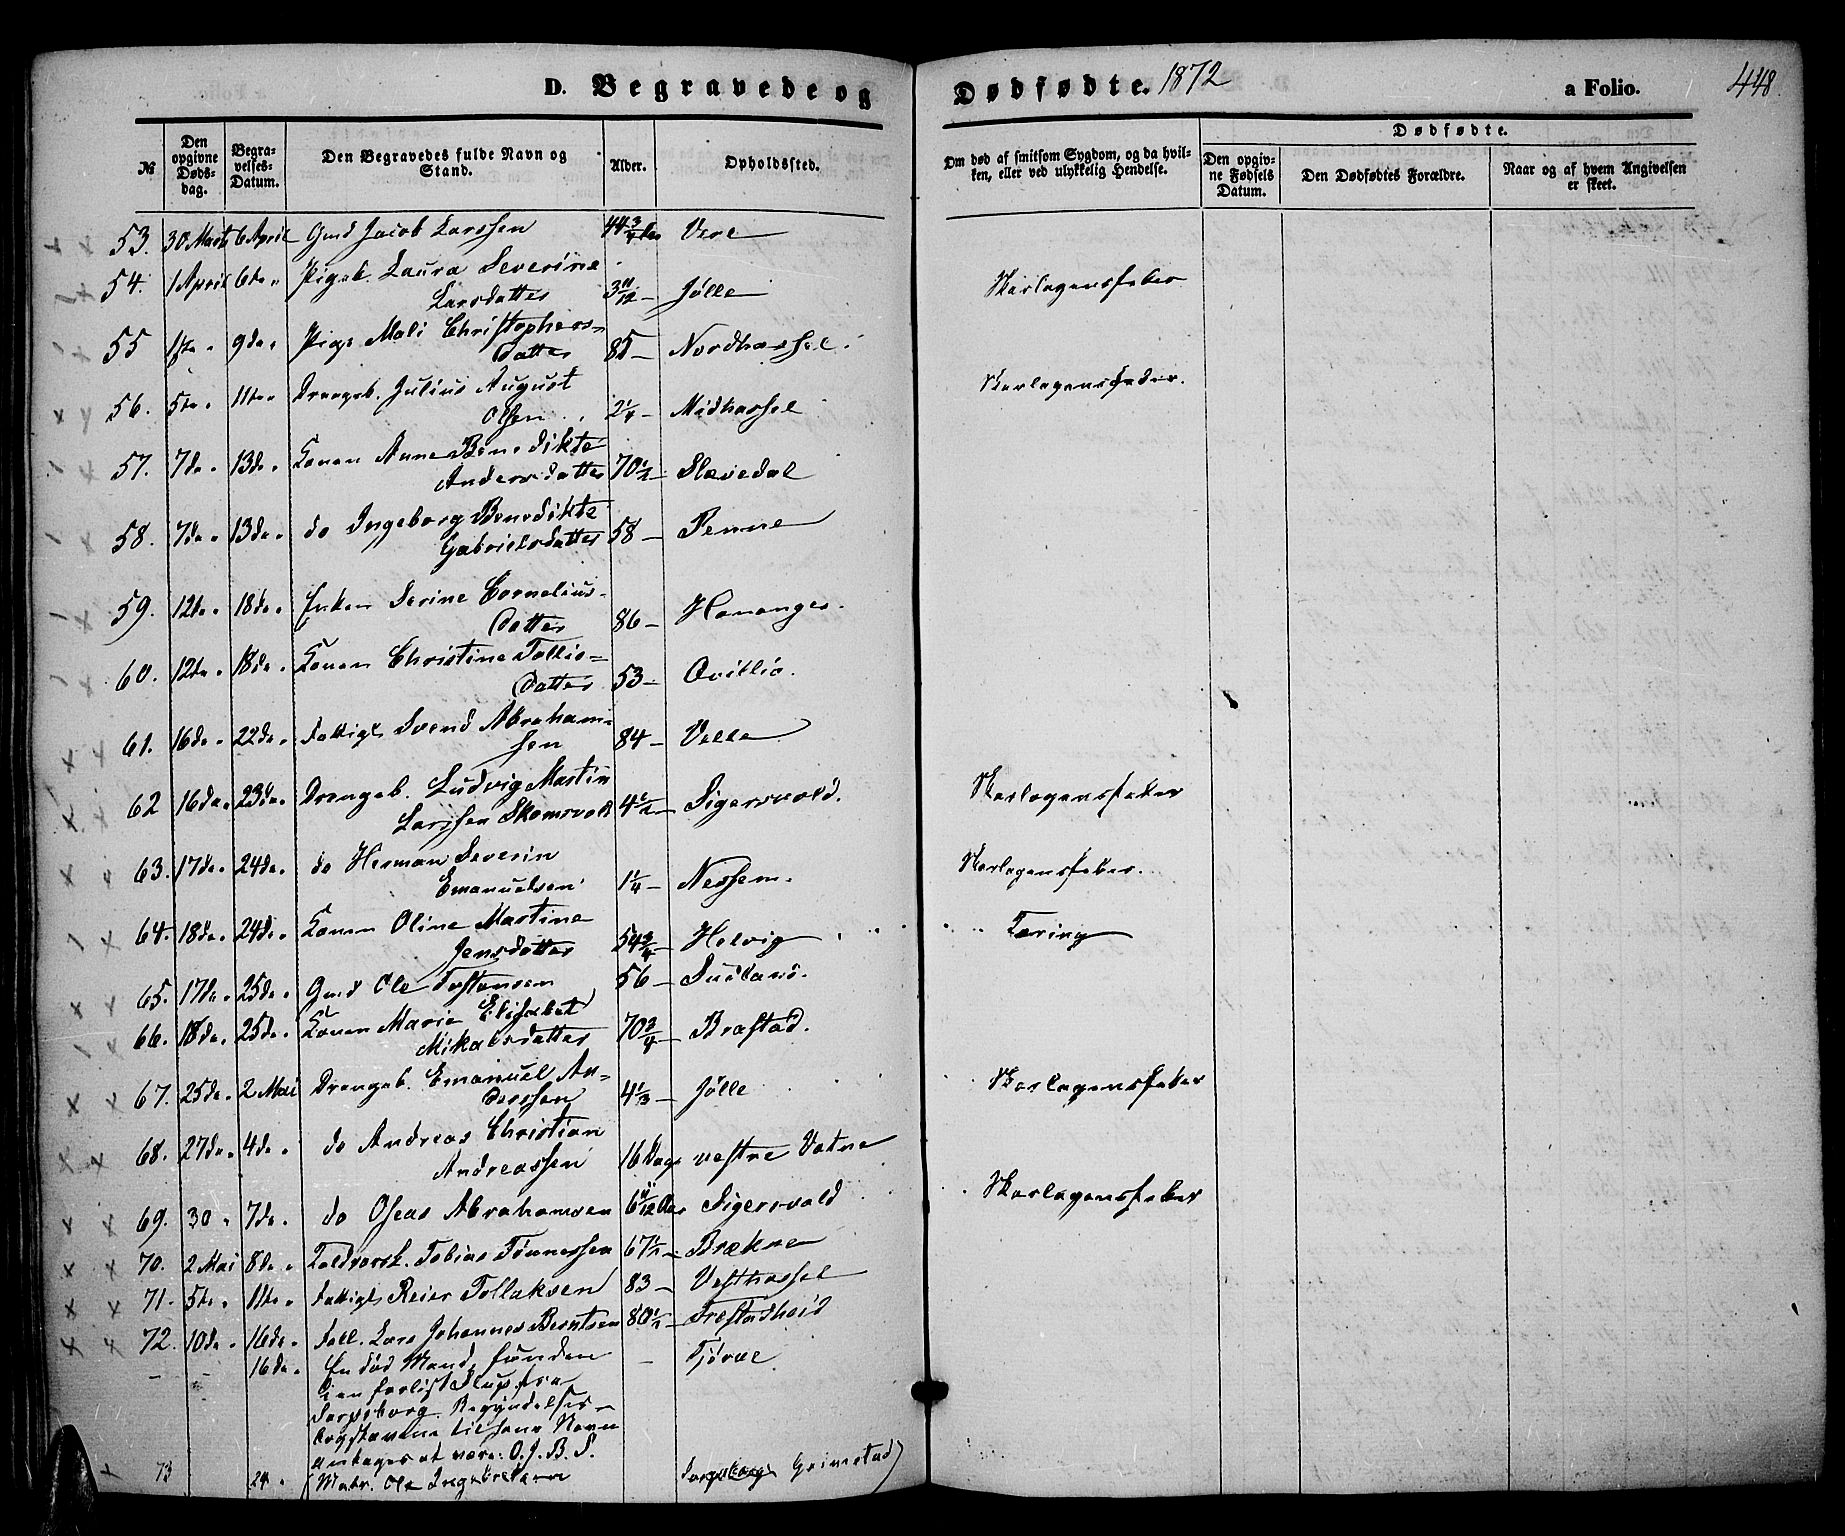 D. Begravede og Dødfødte. 1872 a Folio. 448
№
Den opgivne Døds-dag.
Begra-velses-Datum.
Den Begravedes fulde Navn og Stand.
Alder.
Opholdssted.
Om død af smitsom Sygdom, og da hvil-ken, eller ved ulykkelig Hendelse.
Dødfødte.
Den opgiv-ne Fødsels Datum.
Den Dødfødtes Forældre.
Naar og af hvem Angivelsen er skeet.
53. 30 Marts 6 April Gmd Jacob Larssen 44 3/4 Aar
54. 1 April 6te " Pigeb. Laura Severine
Larsdatter 3 11/12 – Jølle Skarlagensfeber
55 1ste " 9de " Pige Mali Christophers-
datter 85 – Nordhassel.
56. 5te " 11te " Drengeb. Julius August
Olsen 2 1/4 – Midhassel Skarlagensfeber.
57. 7de " 13de " Konen Anne Benedikte
Andersdatter 70 1/2 – Slevedal
58. 7de " 13de " do Ingeborg Benedikte
Gabrielsdatter 58 – Penne
59. 12te " 18de " Enken Serine Cornelius-
datter 86 – Hananger.
60. 12te " 18de " Konen Christine Tollis-
datter 53 –
61. 16de " 22de " Fattigl. Svend Abraham-
sen 84 –
62 16de " 23de " Drengeb. Ludvig Martin
Larssen Skomsvold 4 1/2 – Sigersvold. Skarlagensfeber
63. 17de " 24de " do Herman Severin
Emanuelsen 1 1/4 – Nessem. Skarlagensfeber.
64. 18de " 24de " Konen Oline Martine
Jensdatter 54 3/4 – Helvig Tæring
65. 17de " 25de " Gmd Ole Tostensen 56 –
66. 18de " 25de " Konen Marie Elisabet
Mikalsdatter 70 3/4 – Brastad.
67. 25de " 2 Mai Drengeb. Emanuel An-
derssen 4 1/3 – Jølle Skarlagensfeber
68. 27de " 4de " do Andreas Christian
Andreassen 16 Dage vestre Vatne
69. 30 " 7de " do Oseas Abrahamsen 6 11/12 Aar Sigersvold Skarlagensfeber
70. 2 Mai 8de " Foldrorsk. Tobias Tønnessen 67 1/2 – Brækne
71. 5te " 11te " Fattigl. Reier Tollaksen 83 – Vesthassel
72. 10de " 16de " Lars Johannes Berntsen 80 1/2 –
– " 16de " En død Mand, funden – Tjørve
i en forlist Slup fra
Sarpsborg. Begyndelses-
bogstavene til hans Navn
antages at være: O. J. B. S.
73 24 " Matr. Ole Ingebretsen Sarpsborg Grimstad)